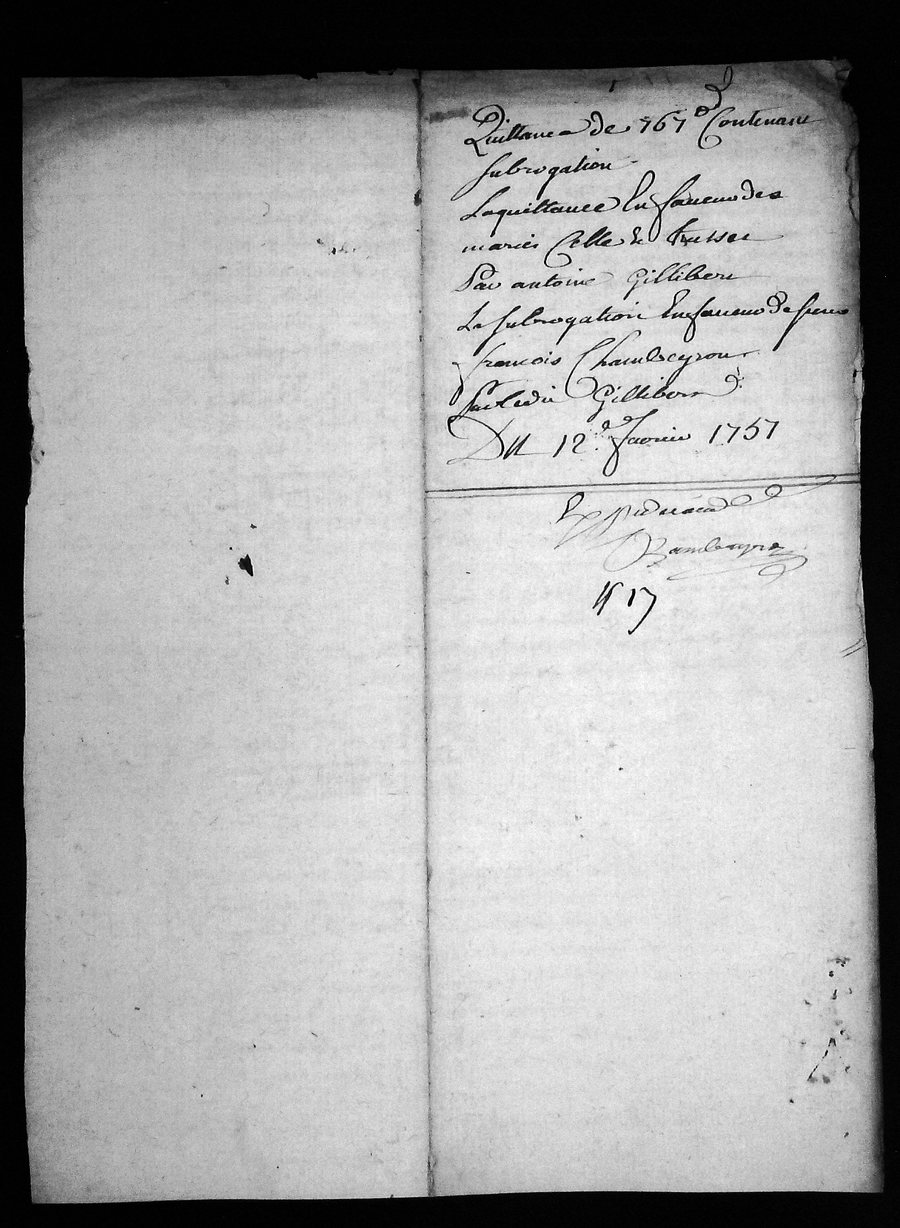 Quittance de 767# Contenant
subrogation
Laquittance En faveur des
mariés Celle &
Par antoine Gillibert
La subrogation En faveur de sieur
francois Chambeyron
Par ledit Gillibert
Du 12e fevrier 1757
Expedié
n° 17